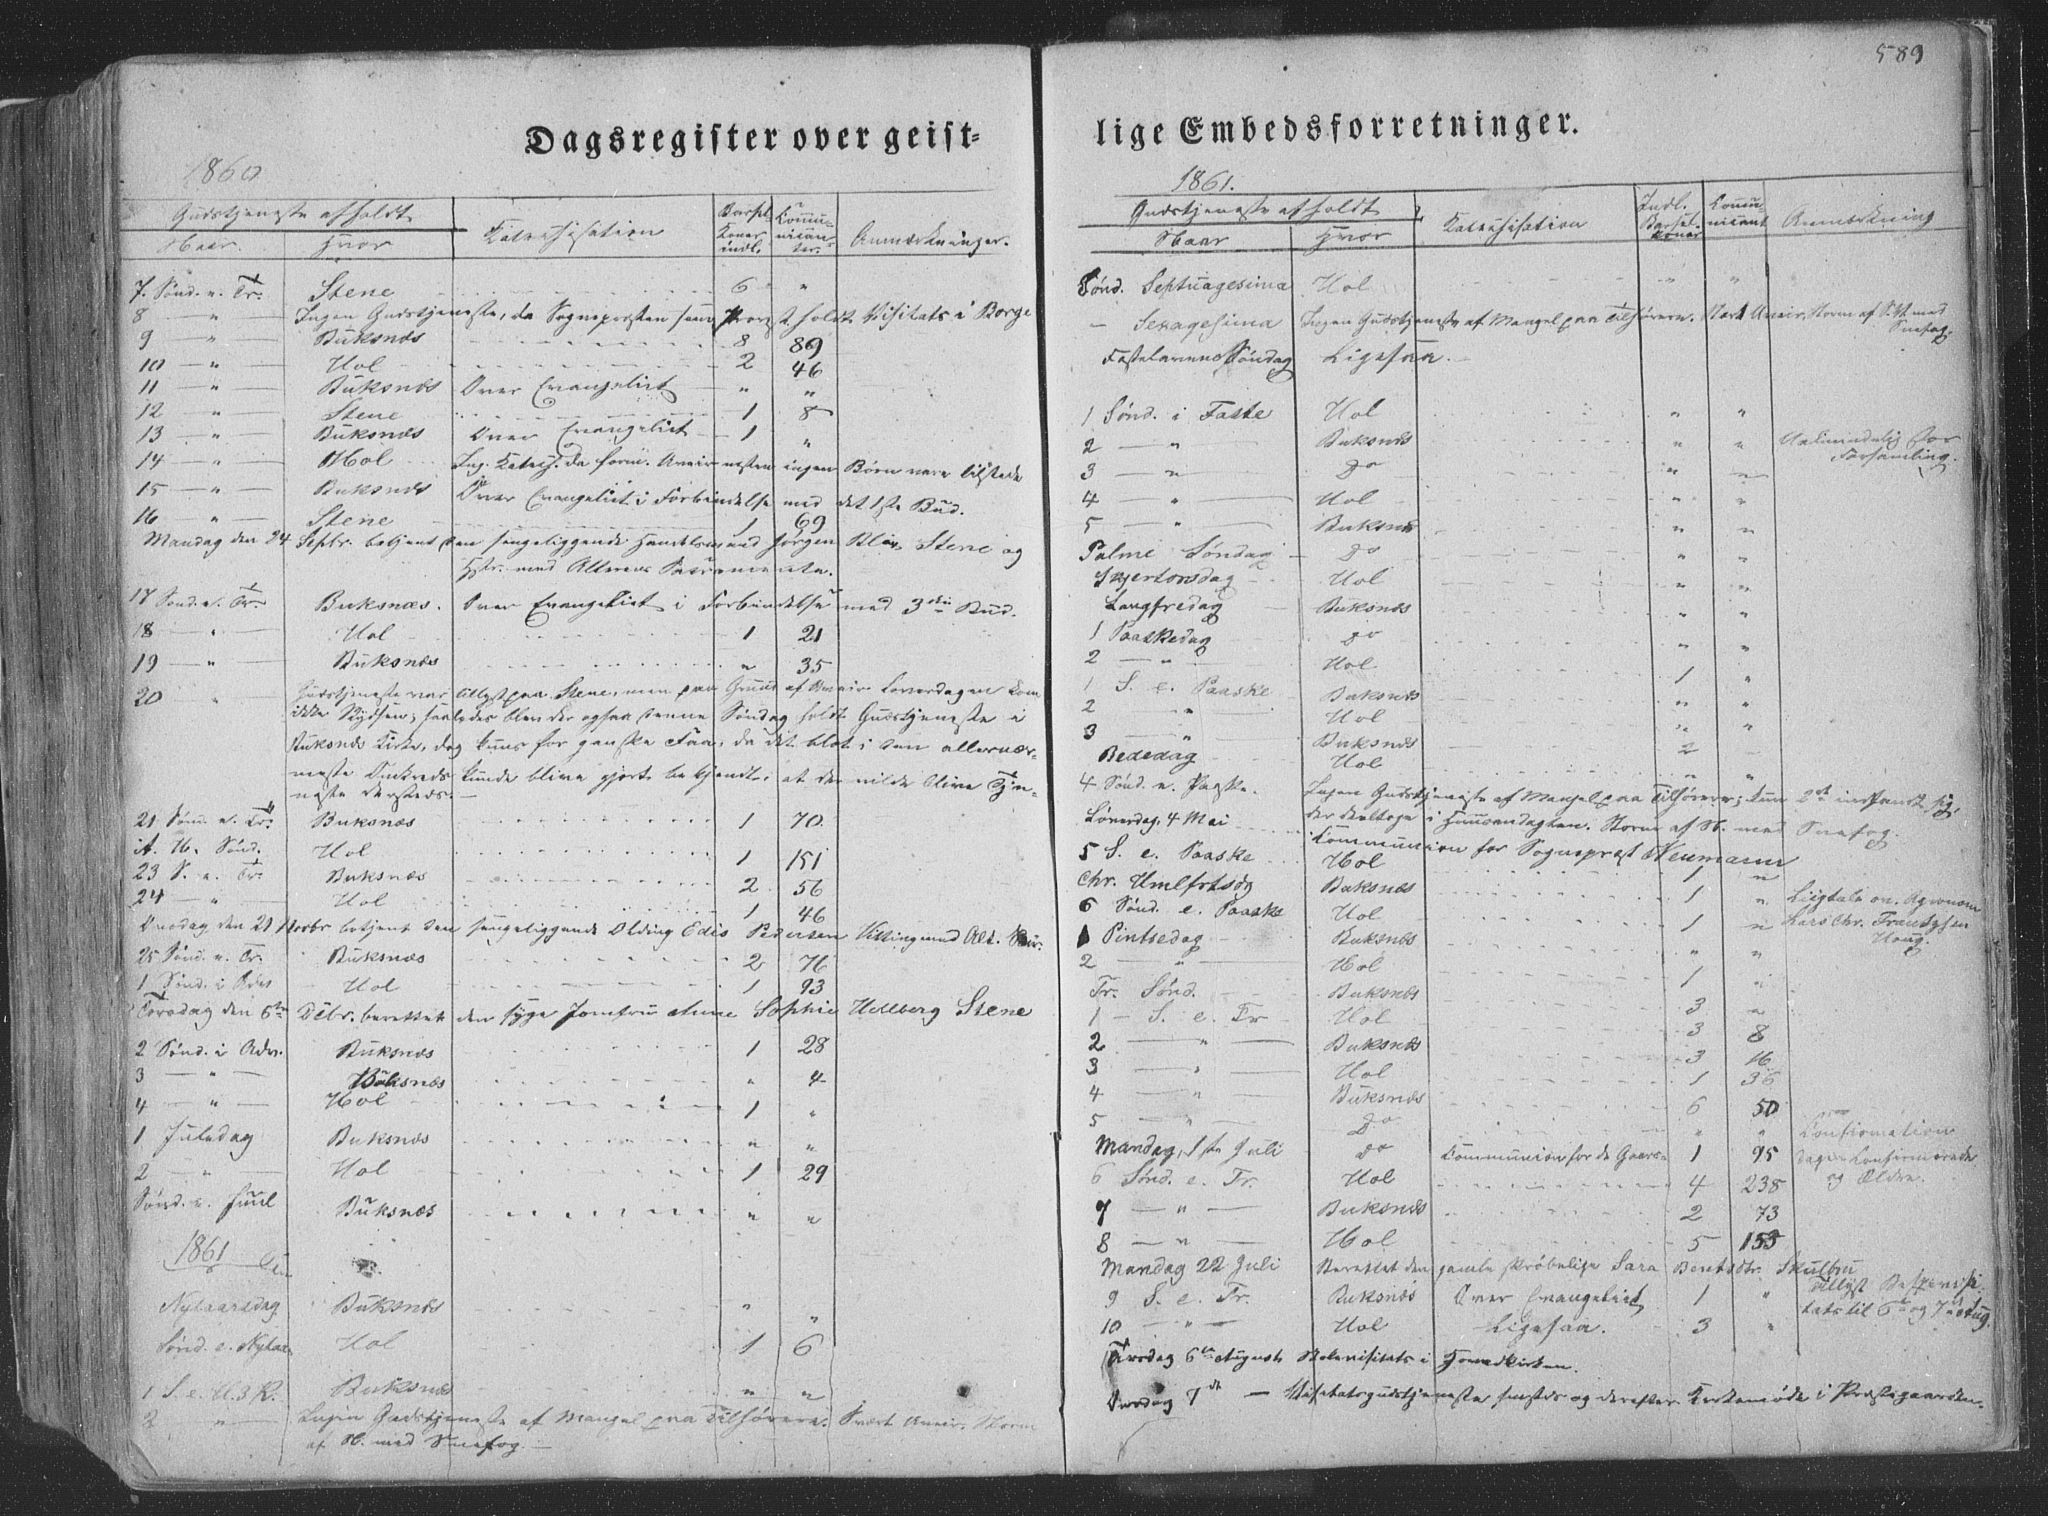 589
Dagsregister over geist-
lige Embedsforretninger.
1860
Gudstjeneste afholdt
Naar. Hvor Katechisation Barsel Koner indl. Kommunicanter. Anmærkninger.
7. Sønd. e. Tr. Stene 6 "
8 — " — Ingen Gudstjeneste, da Sognepræsten som Provst holdt Visitats i Borge
9 — " — Buksnæs 8 89
10 — " — Hol 2 46
11 — " — Buksnæs Over Evangeliet " "
12 — " — Stene 1 8
13 — " — Buksnæs Over Evangeliet 1 "
14 — " — Hol Ing. Katech. da form. Uveir næsten ingen Børn vare tilstede
15 — " — Buksnæs Over Evangeliet i Forbindelse med det 1ste Bud.
16 — " — Stene 1 69
Mandag den 24 Septbr. betjent den sengeliggende Handelsmand Jørgen Stene og
Hstr. med Alterens Sacramente.
17 Sønd. e. Tr. Buksnæs. Over Evangeliet i Forbindelse med 3die Bud.
18 — " — Hol 1 21
19 — " — Buksnæs " 35
20 " Gudstjeneste var tillyst paa Stene, men paa Grund af Uveir Løverdagen kom
ikke Skydsen; saaledes blev der ogsaa denne Søndag holdt Gudstjeneste i
Buksnæs Kirke, dog kuns for ganske Faa, da det blot i den allernær-
meste Omkreds kunde blive gjort bekjendt, at der vilde blive Tjen-
neste dersteds. —
21 Sønd. e. Tr. Buksnæs 1 70
Hol 1 151
23 S. e. Tr. Buksnæs 2 56
24 — " Hol 1 46
Onsdag den 21 Novbr betjent den sengeliggende Olding Edis Pedersen med Alt. Sacr.
25 Sønd. e. Tr. Buksnæs 2 76
1 Sønd. i Adv Hol 1 93
Torsdag den 6te Dcbr. berettet den syge Jomfru Anne Sophie Helberg Stene
2 Sønd. i Adv. Buksnæs 1 28
3 — " — Buksnæs " 4
4 — " — Hol 1 "
1 Juledag Buksnæs " "
2 — " — Hol 1 29
Sønd. e. Juul Buksnæs " "
1861
Nytaarsdag Buksnæs " "
Sønd. e. Nytaar Hol 1 6
1 S. e. H. 3 K. Buksnæs " "
2 " Ingen Gudstjeneste af Mangel paa Tilhørere. Svært Uveir. Storm
af N. med Snefog. —
1861.
Gudstjeneste afholdt
Naar Hvor Katechisation Indl. Barselkoner Communicant Anmærkning
Sønd. Septuagesima Hol " "
— Sexagesima Ingen Gudstjeneste af Mangel paa Tilhørere. Stærkt Uveir, Storm af med
Snefog.
Fastelavns Søndag Ligesaa.
1 Sønd. i Faste Hol " "
2 — " Buksnæs " " Ualmindelig stor
Forsamling.
3 — " do " "
4 — " Hol " "
5 — " — Buksnæs " "
Palme Søndag do " "
Skjertorsdag Hol " "
Langfredag Buksnæs " "
1 Paaskedag do " "
2 — " — Hol 1 "
1 S. e. Paaske Buksnæs " "
2 " Hol " "
3 — " Buksnæs 2 —
Bededag Hol " "
4 Sønd. e. Paaske. Ingen Gudstjeneste af Mangel paa Tilhørere; kun 2de indfandt sig,
der deeltoge i Huusandagten. Storm af N. med Snefog.
Løverdag, 4 Mai Kommunion for Sognepræst Neumann
5 S. e. Paaske Hol 1 "
Chr. Himlfrtsdg Buksnæs 1 " Liigtale ov. Agronom
6 Sønd. e. Paaske Hol 1 " Lars Chr. Frantzsen
Haug.
1 Pintsedag Buksnæs " "
2 — " Hol 1 "
Tr. Sønd. Buksnæs 3 "
1 — S. e. Tr Hol 3 8
2 — " — Buksnæs 3 16
3 — " Hol 1 36
4 — " Buksnæs 6 50
5 — " do " " Confirmation
Mandag, 1ste Juli do Communion for de Gaars- 1 95 dagen Confirmerede
6 Sønd. e. Tr. Hol 4 238 og Ældre.
7 — " — Buksnæs 2 73
8 — " — Hol 5 155
Mandag 22 Juli Berettet den gamle skrøbelige Sara Bentsdtr. Skulbru
9 S. e. Tr. Buksnæs Over Evangeliet 1 " Tillyst Bispevisi-
10 — " — Hol — Ligesaa. 3 " tats til 6te og 7de Aug.
Tirsdag 6te August Skolevisitats i Hovedkirken.
Onsdag 7de — Visitatsgudstjeneste sammesteds og derefter Kirkemøde i Præstegaarden.